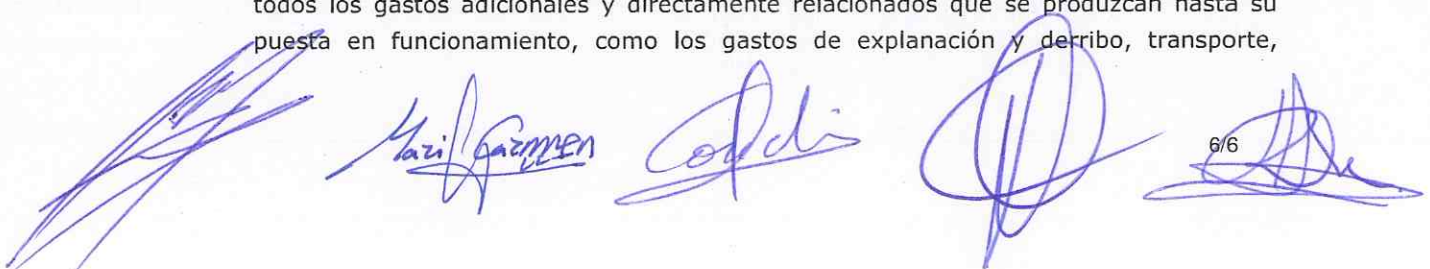 todos los gastos adicionales y directamente relacionados que se produzcan hasta su
puesta en funcionamiento, como los gastos de explanación y derribo, transporte,
Mari Carmen
6/6